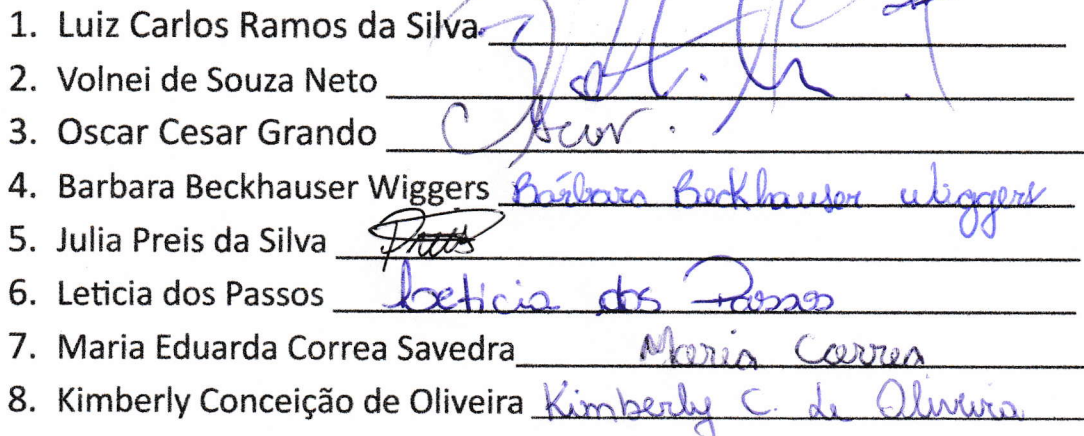 1. Luiz Carlos Ramos da Silva
2. Volnei de Souza Neto
3. Oscar Cesar Grando Oscar.
4. Barbara Beckhauser Wiggers Bárbara Beckhauser Wiggers
5. Julia Preis da Silva Preis
6. Leticia dos Passos Leticia dos Passos
7. Maria Eduarda Correa Savedra Maria Correa
8. Kimberly Conceição de Oliveira Kimberly C. de Oliveira